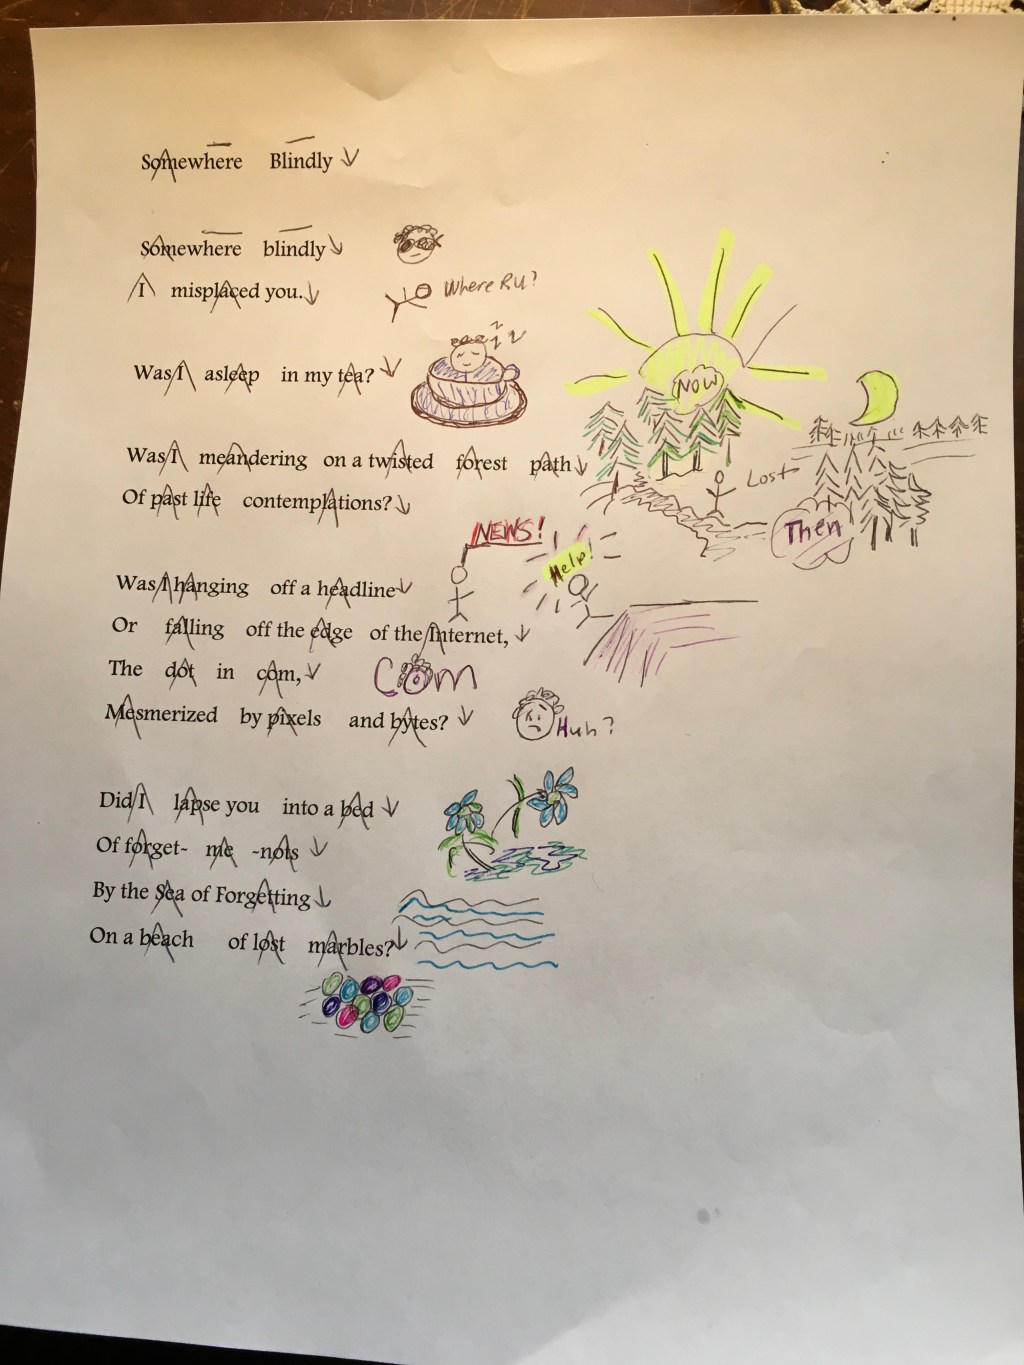 Somewhere Blindly
Somewhere blindly
I misplaced you.
Where R U?
Was I asleep in my tea?
z z z z
NOW
Was I meandering on a twisted forest path
Lost
Of past life contemplations?
Then
NEWS!
Help!
Was I hanging off a headline
Or falling off the edge of the Internet,
The dot in com,
Com
Mesmerized by pixels and bytes?
Huh?
Did I lapse you into a bed
Of forget- me -nots
By the Sea of Forgetting
On a beach of lost marbles?